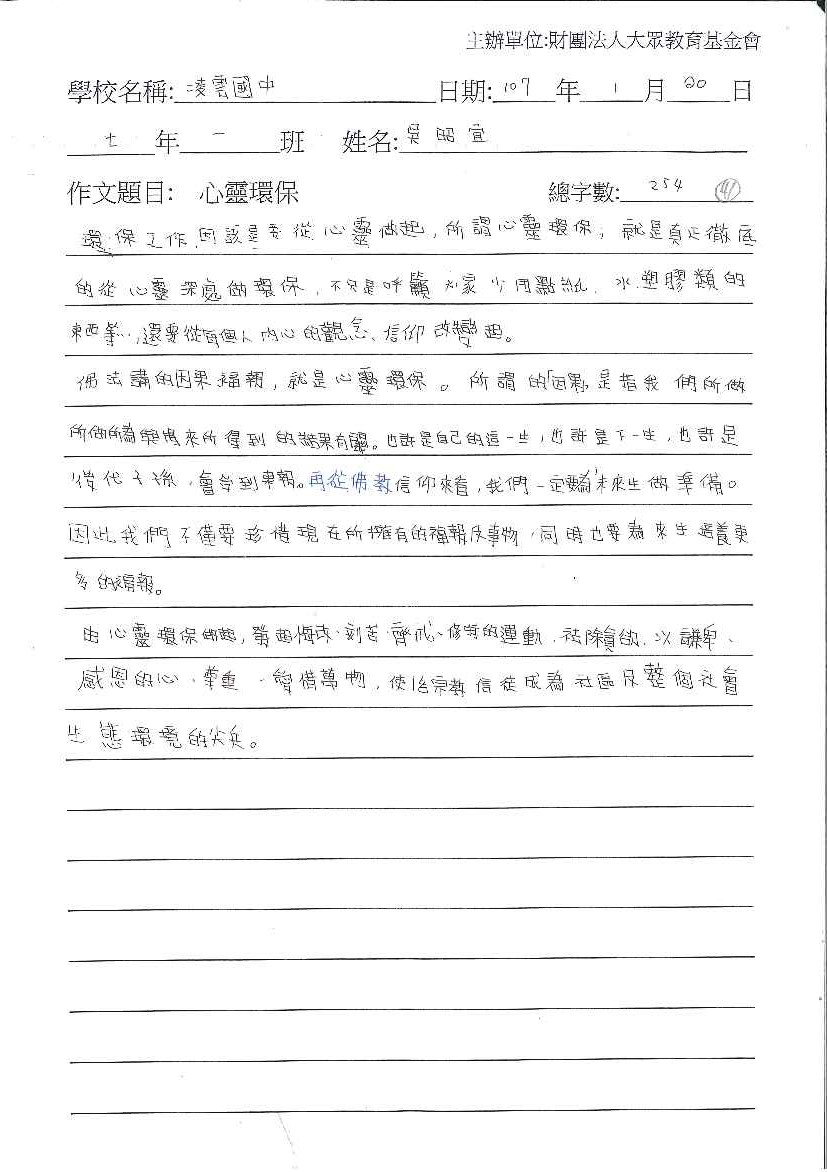 主辦單位:財團法人大眾教育基金會
學校名稱: 凌雲國中 日期: 107 年 1 月 20 日
七 年 一 班 姓名: 吳昭宣
作文題目: 心靈環保 總字數: 254
環保工作因該是要從心靈做起，所謂心靈環保，就是真正徹底
的從心靈深處做環保，不只是呼籲大家少用點紙、水、塑膠類的
東西等…，還要從每個人內心的觀念、信仰改變起。
佛法講的因果福報，就是心靈環保。所謂的「因果」是指我們所做
所做所為 來所得到的結果有關。也許是自己的這一生，也許是下一生，也許是
後代子孫，會受到果報。再從佛教信仰來看，我們一定要為未來生做準備。
因此我們不僅要珍惜現在所擁有的福報及事物，同時也要為來生培養更
多的福報。
由心靈環保做起，發起悔改、刻苦、齊戒、修行的運動、祛除貪欲、以謙卑、
感恩的心、尊重、愛惜萬物，使 宗教信徒成為社區及整個社會
生態環境的尖兵。